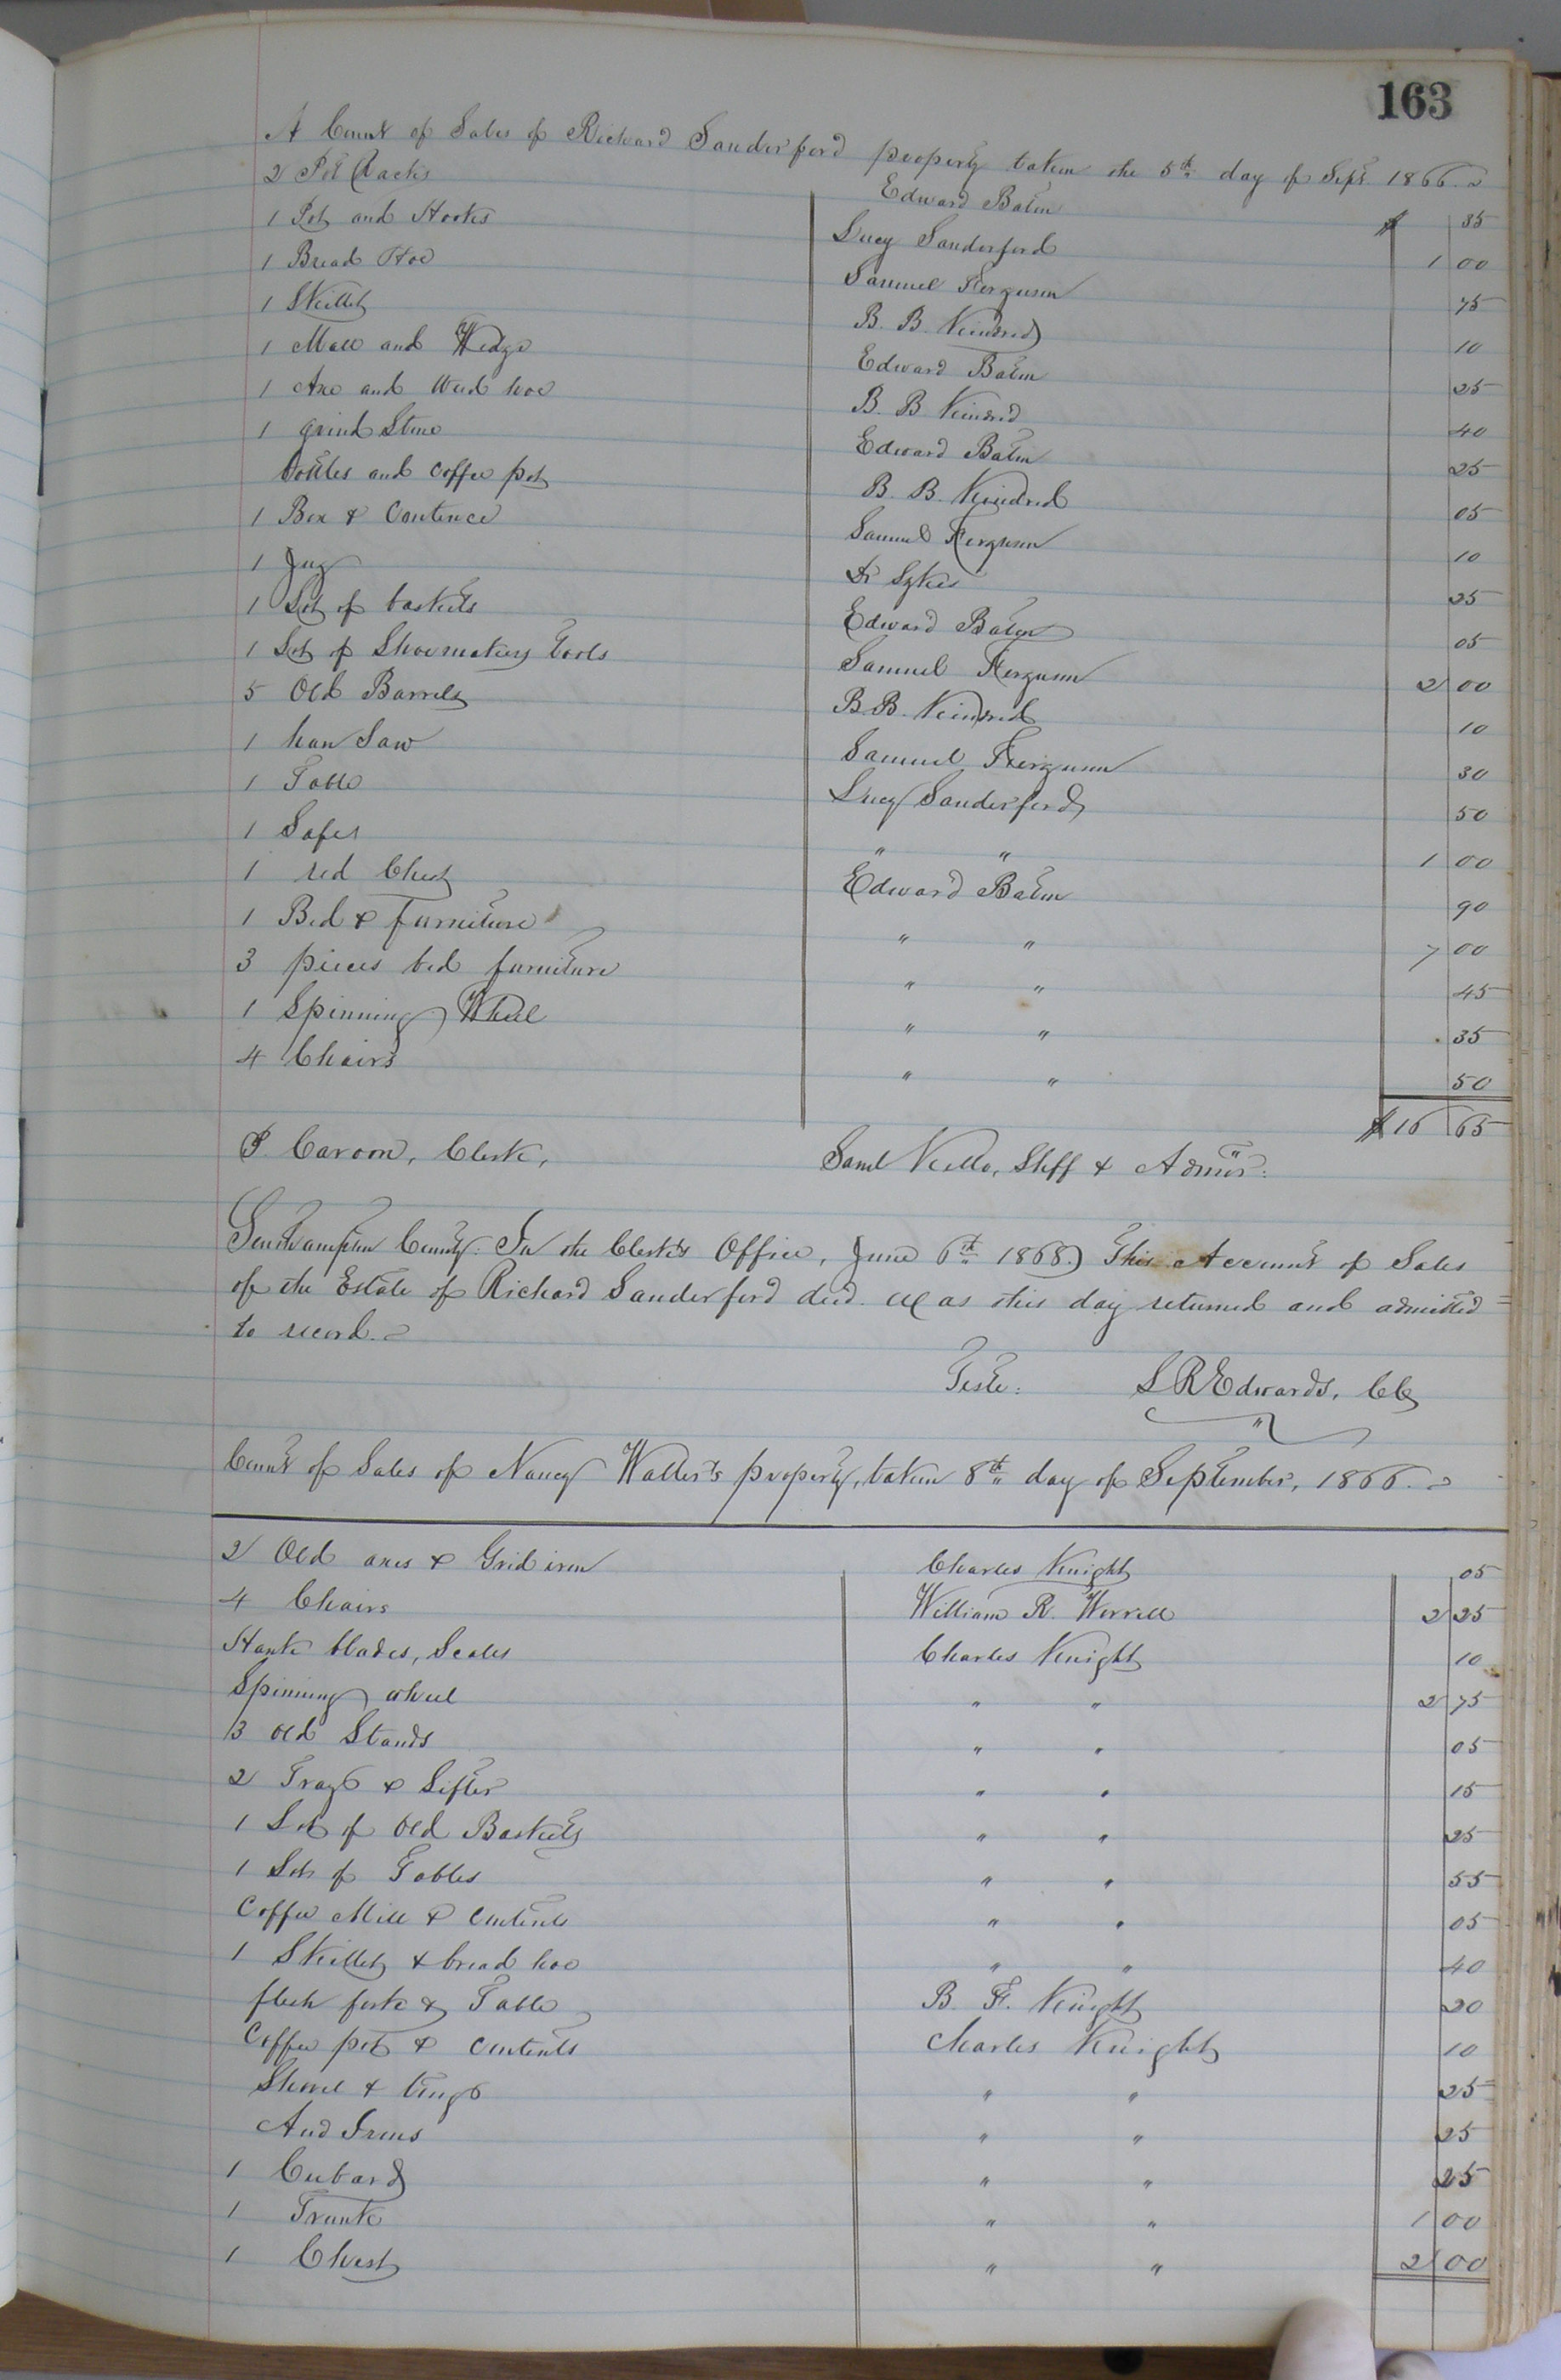 163
A Count of Sales of Richard Sanderford property taken the 5th day of Sept. 1866.
2 Pot Racks Edward Batin $ 35
1 Pot and Hooks Lucy Sanderford 1 00
1 Bread Hoe Samuel Ferguson 75
1 Skillet B. B. Kindred 10
1 Mall and Wedge Edward Batin 25
1 Axe and Weed hoe B. B. Kindred 40
1 grind Stone Edward Batin 25
bottles and coffee pot B. B. Kindred 05
1 Box & Contence Samuel Ferguson 10
1 Jug Dr Sykes 25
1 Lot of baskets Edward Batin 05
1 Lot of Shoemakers tools Samuel Ferguson 2 00
5 Old Barrels B. B. Kindred 10
1 han Saw Samuel Ferguson 30
1 Table Lucy Sanderford 50
1 Safe " " 1 00
1 red Chest Edward Batin 90
1 Bed & furniture " " 7 00
3 pieces bed furniture " " 45
1 Spinning Wheel " " 35
4 Chairs " " 50
$16 65
Caroon, Clerk, Saml Kello, Shff & Admor.
Southampton County: In the Clerk's Office, June 6th 1868. This Account of Sales
of the Estate of Richard Sanderford decd. was this day returned and admitted
to record.
Teste: L R Edwards, CC
Count of Sales of Nancy Waller's property, taken 8th day of September, 1866.
2 Old axes & Grid iron Charles Knight 05
4 Chairs William R. Worrell 2 25
Hank blades, Scales Charles Knight 10
Spinning wheel " " 2 75
3 old Stands " " 05
2 Trays & Sifter " " 15
1 Lot of Old Baskets " " 25
1 Lot of Tables " " 55
Coffee Mill & contents " " 05
1 Skillet & bread hoe " " 40
flesh fork & Table B. F. Knight 20
Coffee pot & contents Charles Knight 10
Shovel & tongs " " 25
And Irons " " 25
1 Cubard " " 25
1 Trunk " " 1 00
1 Chest " " 2 00